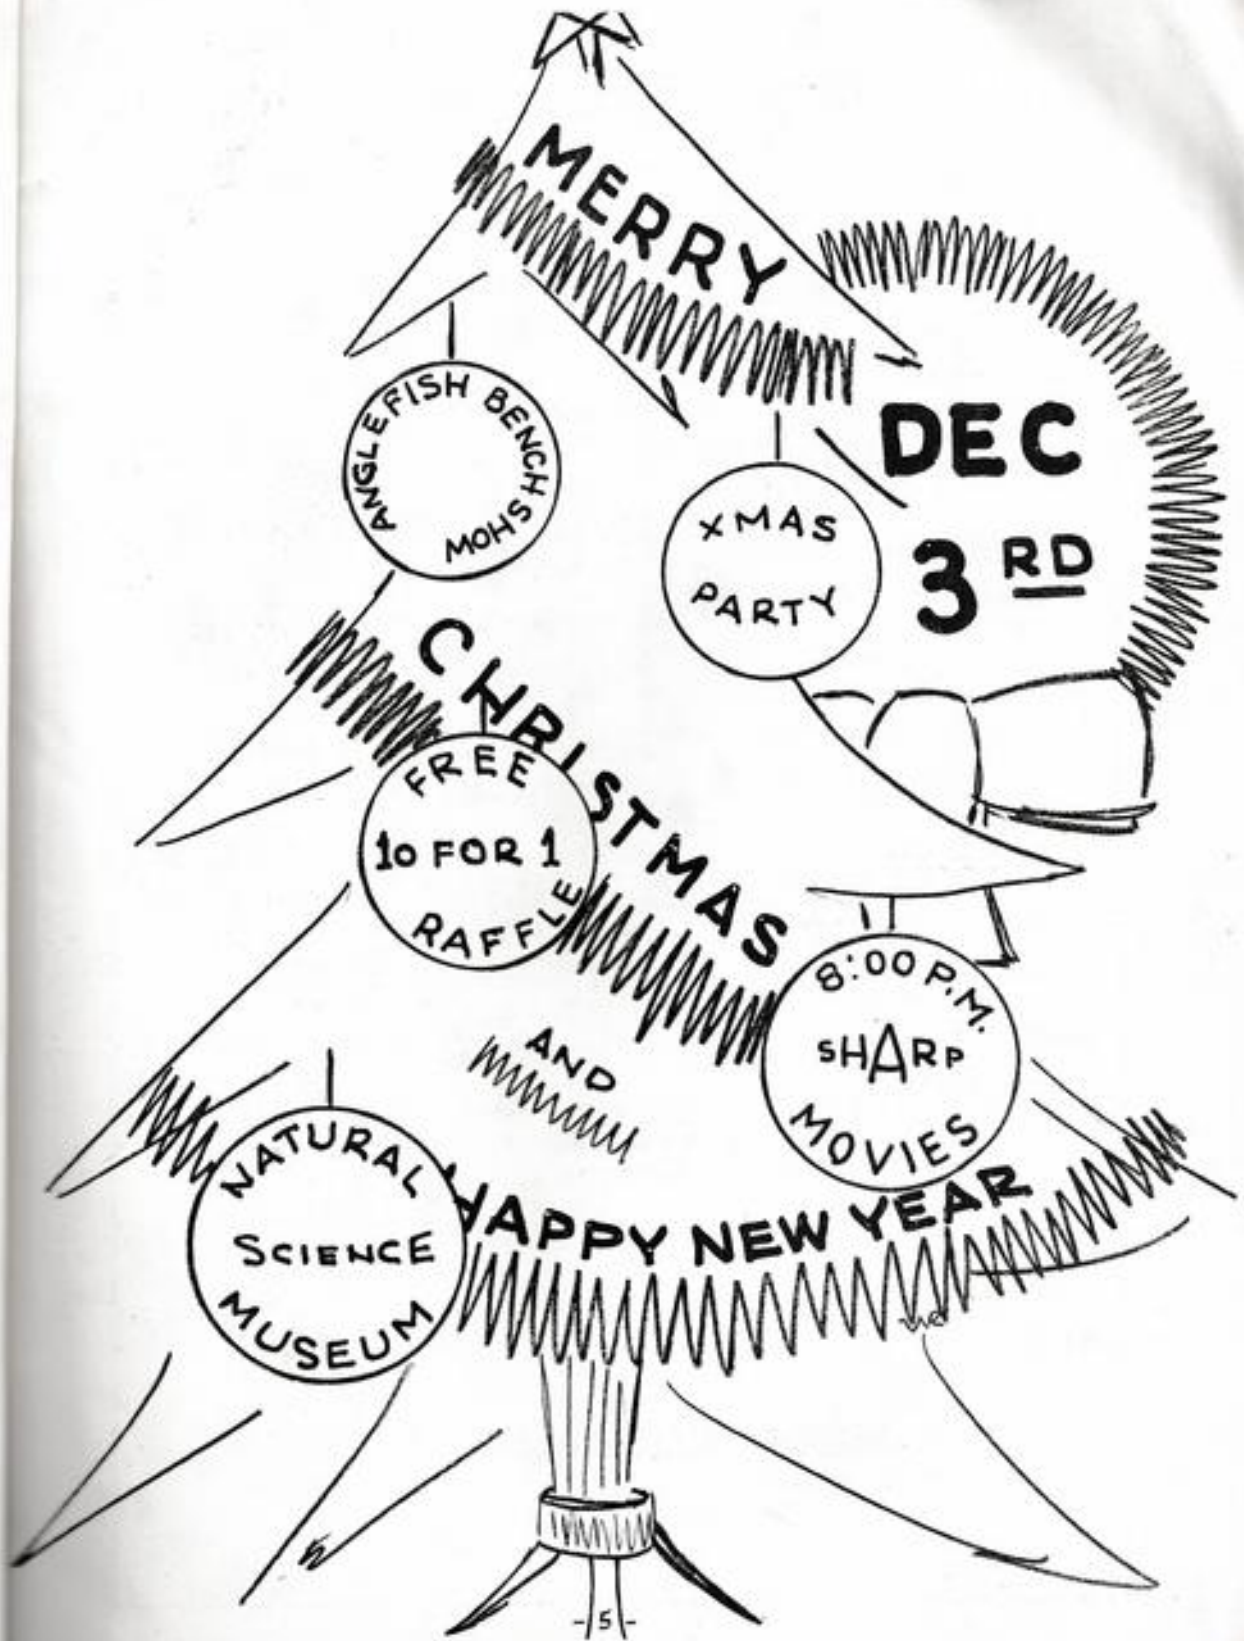 MERRY
ANGLEFISH BENCH SHOW
DEC
3RD
XMAS
PARTY
CHRISTMAS
FREE
10 FOR 1
RAFFLE
8:00 P.M.
SHARP
MOVIES
AND
NATURAL
SCIENCE
MUSEUM
HAPPY NEW YEAR
-5-